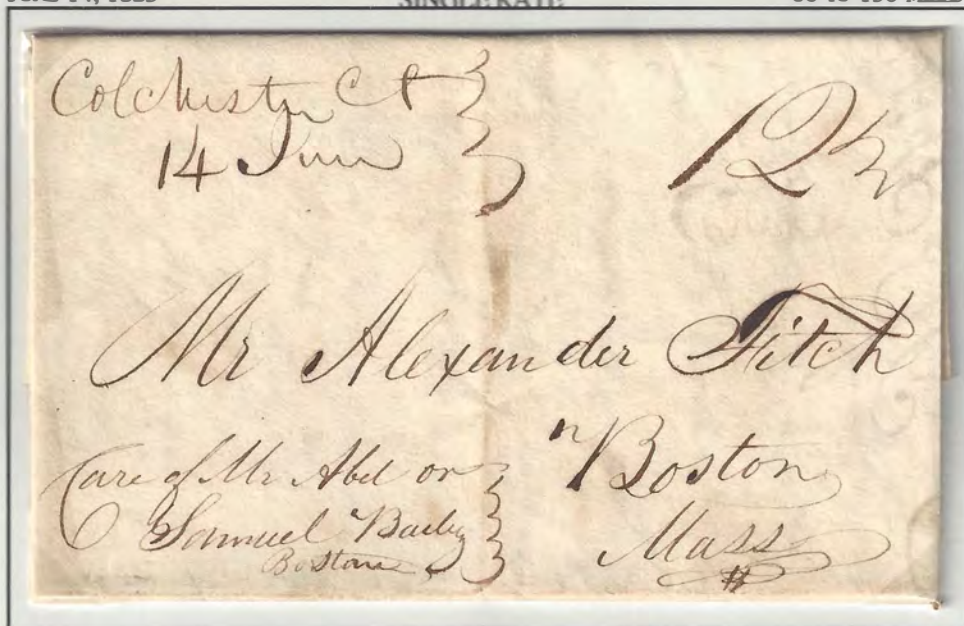 SINGLE RATE
Colchester Ct
14 June
12½
Mr Alexander Fitch
Boston
Mass
Care of Mr Abel or
Samuel Bailey
Boston